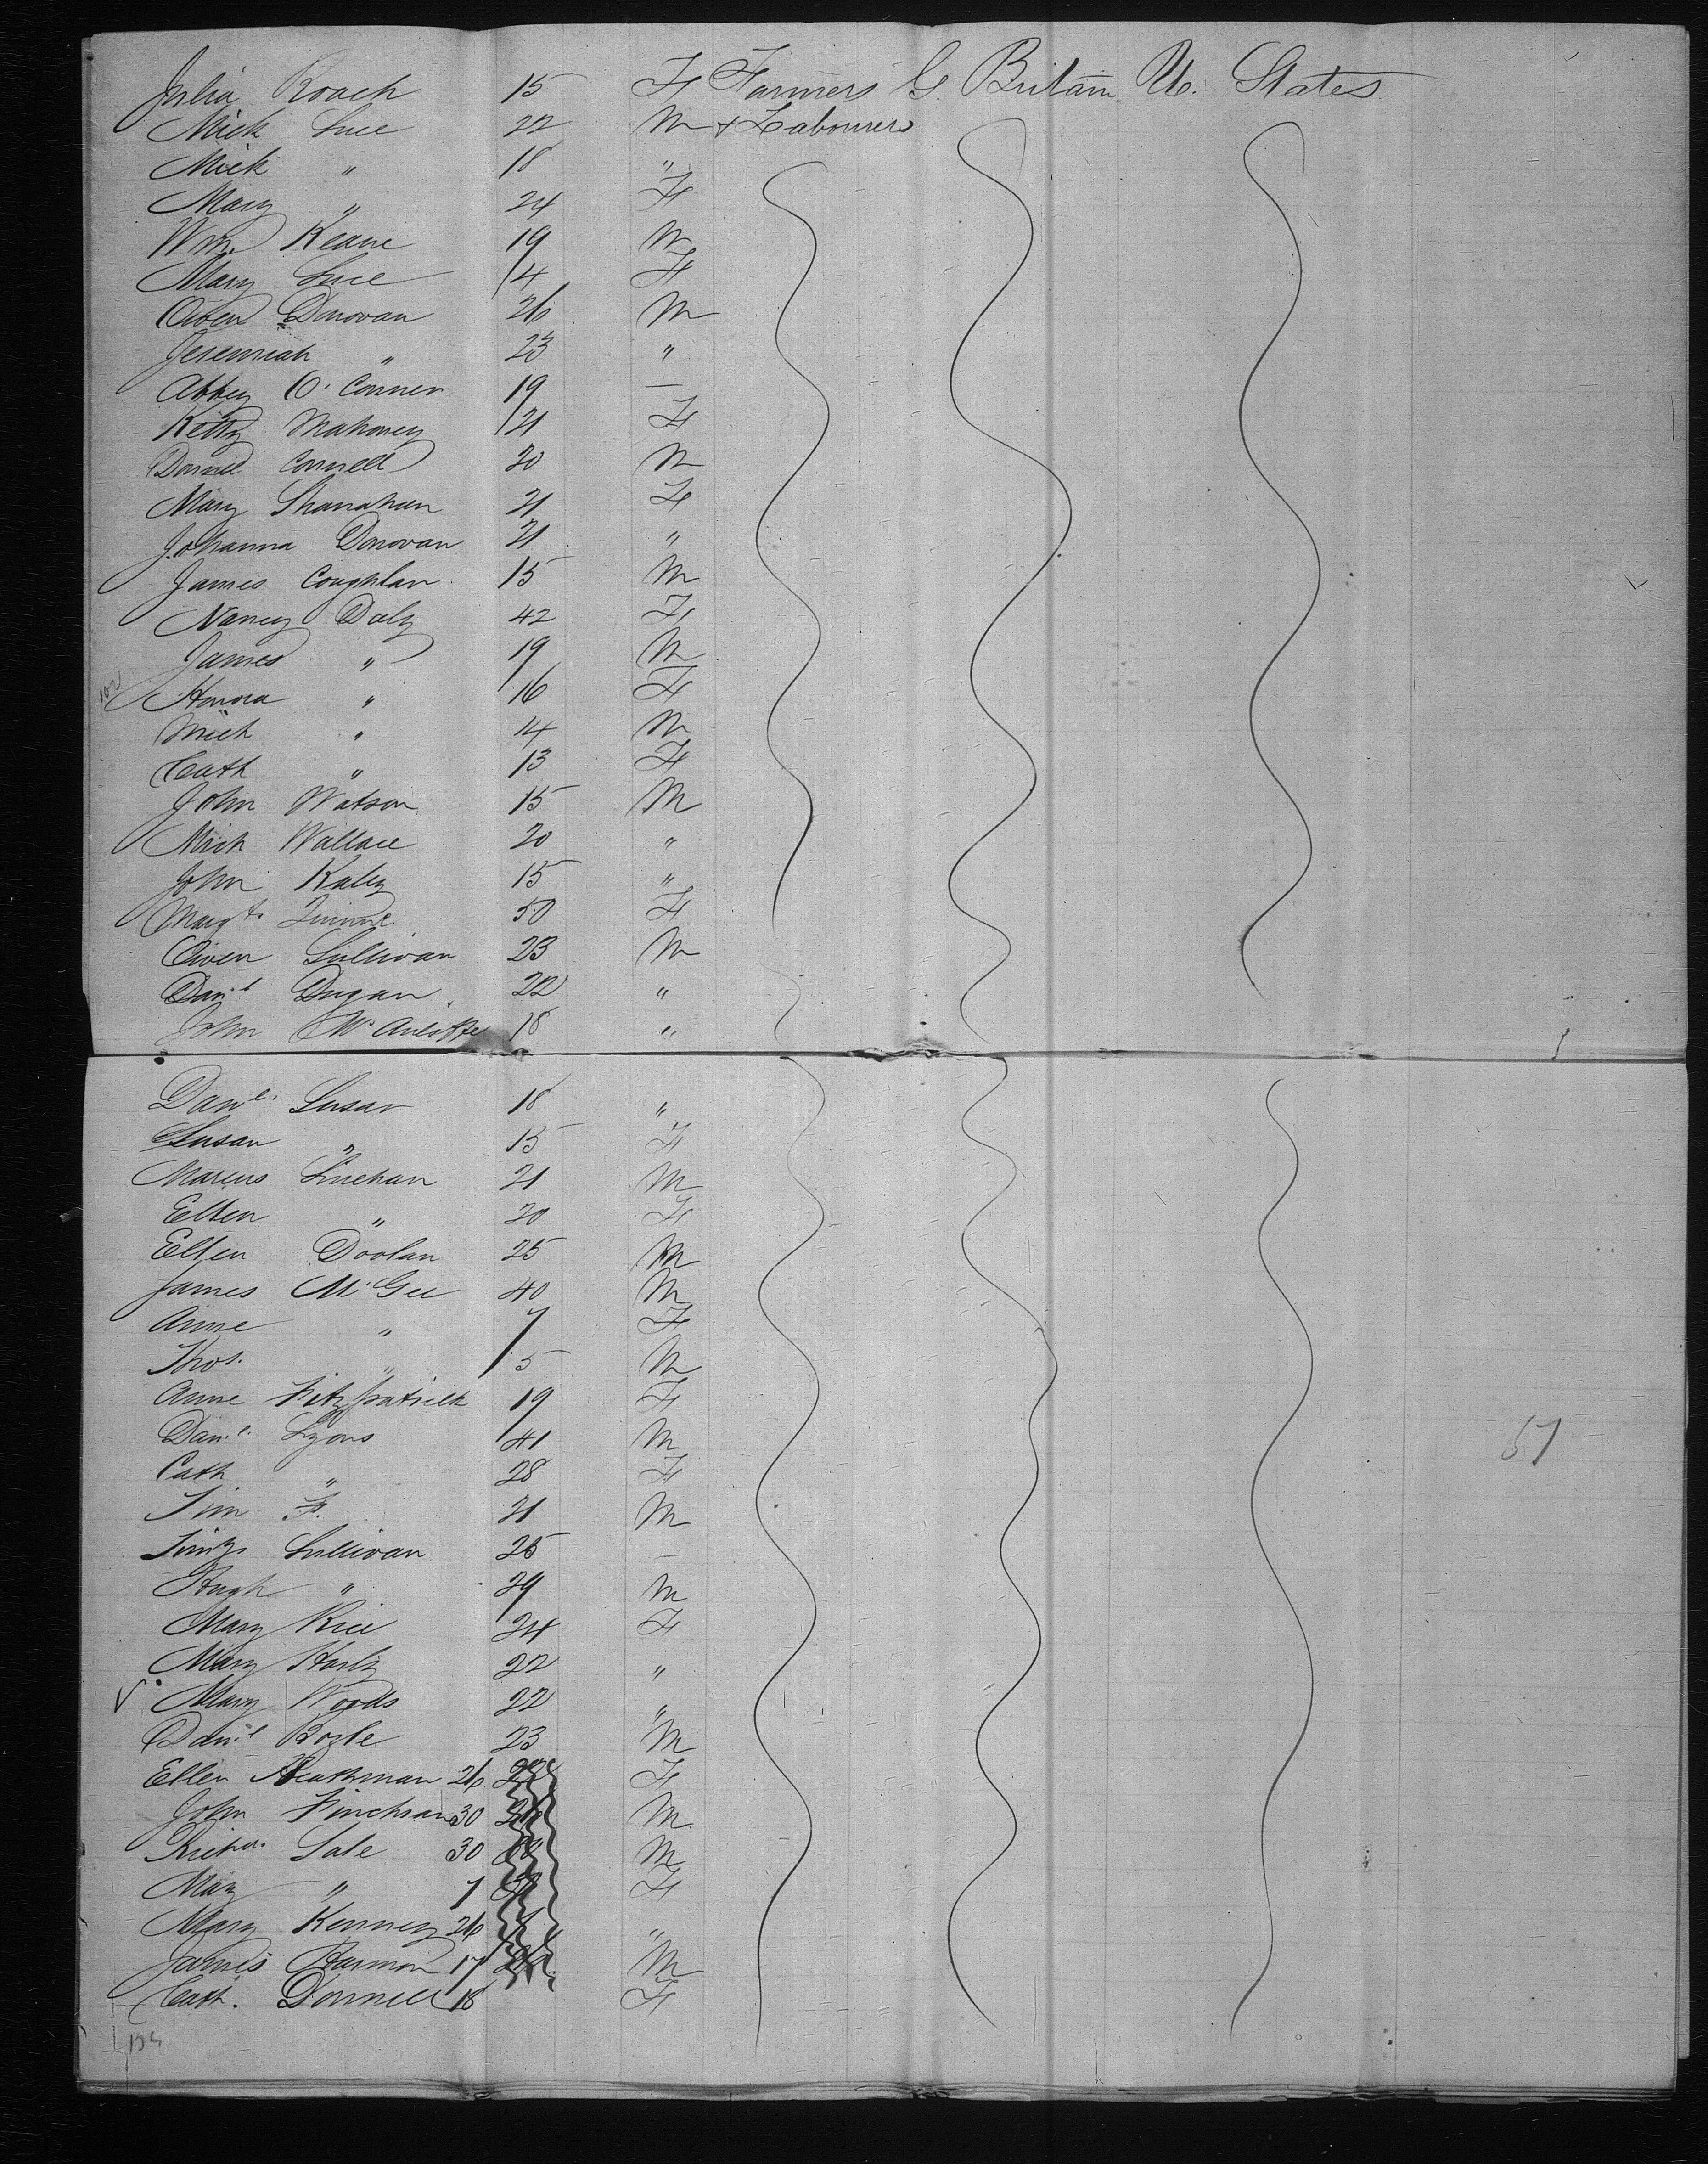 Julia Roach 15 F Farmers G. Britain U. States
Mick Luce 22 M + Labourers
Mick " 18 "
Mary " 24 F
Wm. Keane 19 M
Mary Luce 14 F
Owen Donovan 26 M
Jeremiah " 23 "
Abbey O'Conner 19 —
Kitty Mahoney 21 F
Daniel Connell 20 M
Mary Shanahan 21 F
Johanna Donovan 21 "
James Coughlan 15 M
Nancy Daly 42 F
James " 19 M
Honora " 16 F
Mich " 14 M
Cath " 13 F
John Watson 15 M
Mich Wallace 20 "
John Kaley 15 "
Margt. 50 F
Owen Sullivan 23 M
Danl Dugan 22 "
John 18 "
Danl. Susan 18 "
Susan " 15 F
Marcus Linehan 21 M
Ellen " 20 F
Ellen Doolan 25 M
James McGee 40 M
Anne " 7 F
Thos. " 5 M
Anne Fitzpatrick 19 F
Danl. Lyons 41 M
57
Cath " 28 F
Tim F. 21 M
Sullivan 25 —
Hugh " 29 M
Mary Rice 24 F
Mary 22 "
Mary Woods 22 "
Danl Boyle 23 M
Ellen 26 F
John 30 M
Richd. Sale 30 M
May " 7 F
Mary Kenney 26 "
James Harmon 17 M
Cath. Donnell 18 F